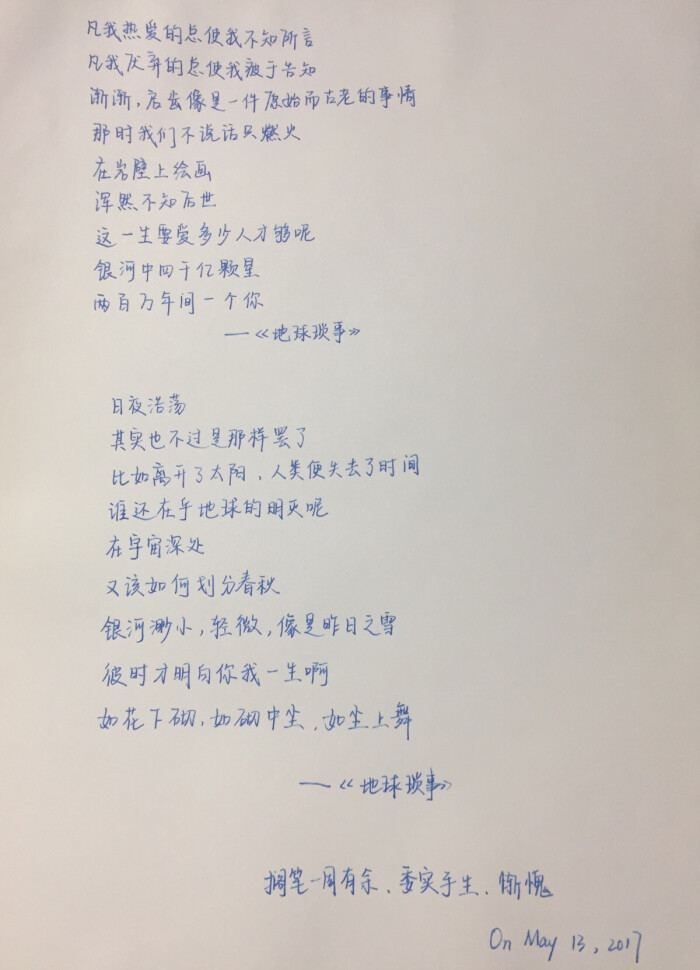 凡我热爱的总使我不知所言
凡我厌弃的总使我疲于告知
渐渐，启齿像是一件原始而古老的事情
那时我们不说话只燃火
在岩壁上绘画
浑然不知后世
这一生要爱多少人才够呢
银河中四千亿颗星
两百万年间一个你
——《地球琐事》
日夜浩荡
其实也不过是那样罢了
比如离开了太阳、人类便失去了时间
谁还在乎地球的明灭呢
在宇宙深处
又该如何划分春秋
银河渺小，轻微，像是昨日之雪
彼时才明白你我一生啊
如花下砌、如砌中尘、如尘上舞
——《地球琐事》
搁笔一周有余、委实手生、惭愧
On May 13, 2017